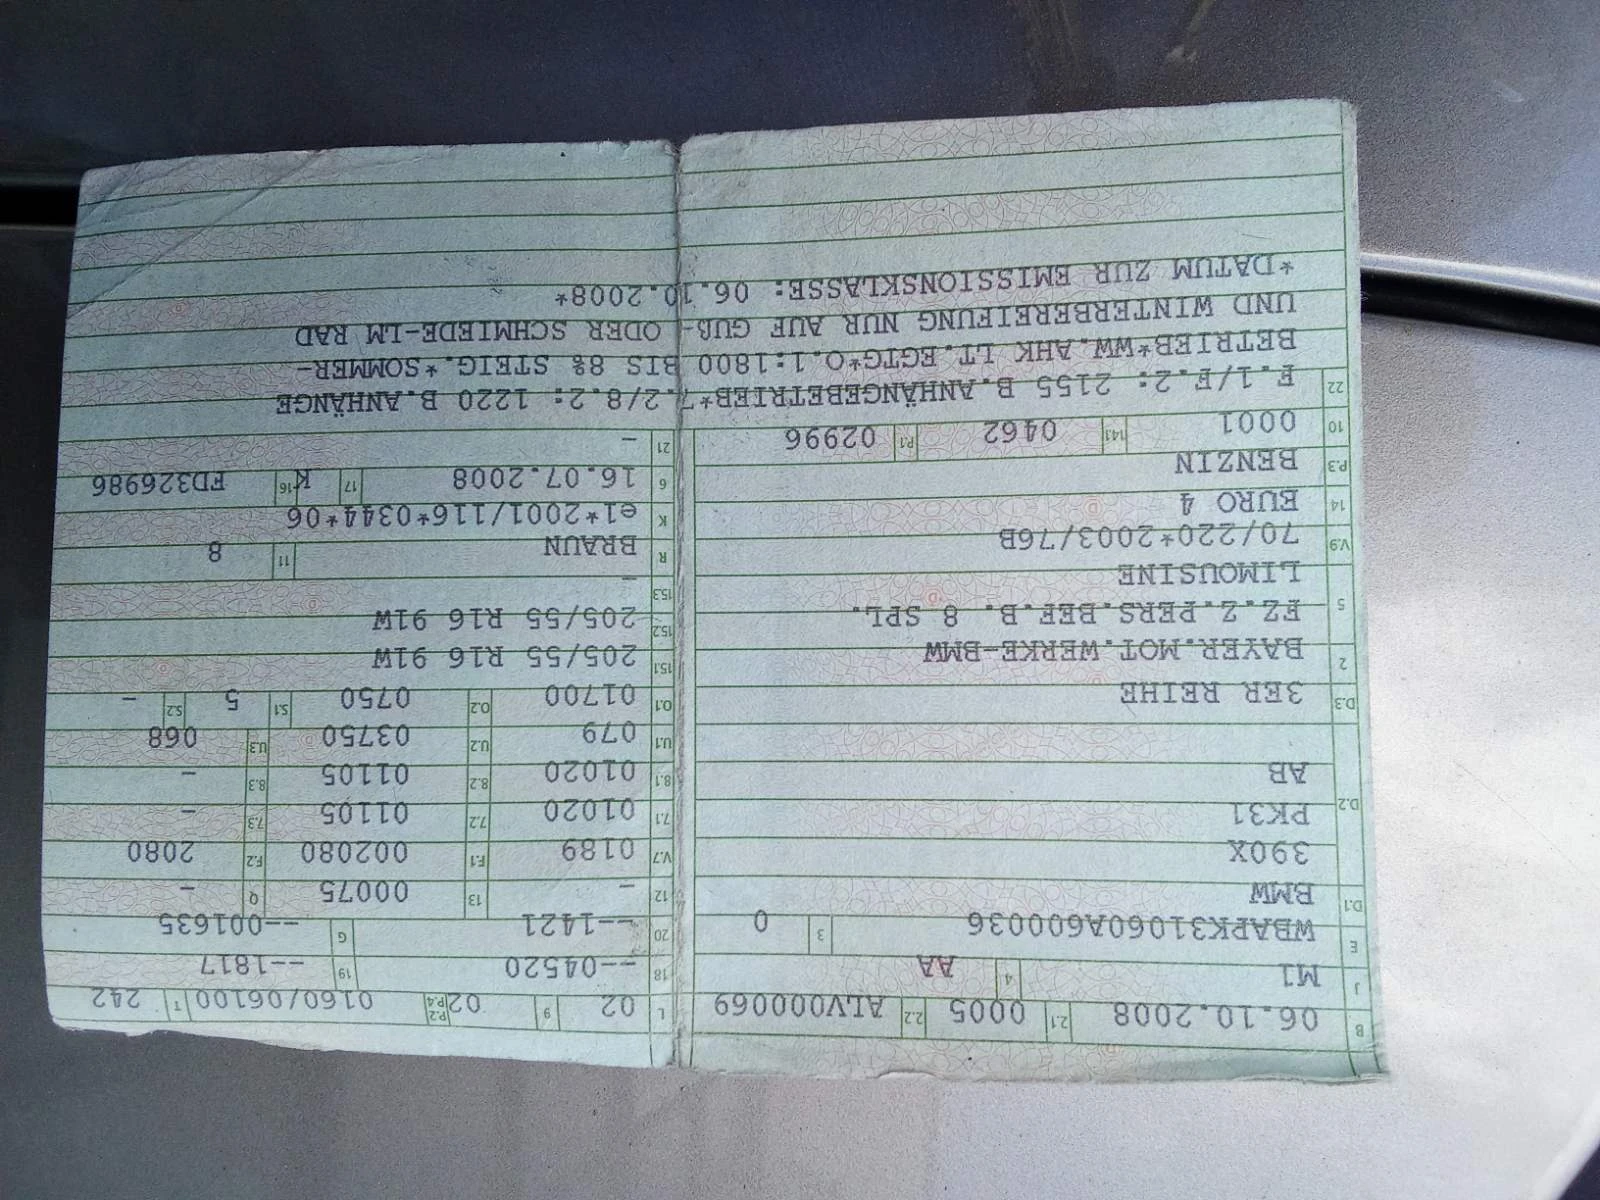 B 06.10.2008 2.1 0005 2.2 ALV000069
J M1 4 AA
E WBAPK31060A600036 3 0
D.1 BMW
390X
D.2 PK31
AB
D.3 3ER REIHE
2 BAYER.MOT.WERKE-BMW
5 FZ.Z.PERS.BEF.B. 8 SPL.
LIMOUSINE
V.9 70/220*2003/76B
14 EURO 4
P.3 BENZIN
10 0001 14.1 0462 P.1 02996
L 02 9 02 P.2 P.4 0160/06100 T 242
18 --04520 19 --1817
20 --1421 G --001635
12 - 13 00075 Q -
V.7 0189 F.1 002080 F.2 2080
7.1 01020 7.2 01105 7.3 -
8.1 01020 8.2 01105 8.3 -
U.1 079 U.2 03750 U.3 068
O.1 01700 O.2 0750 S.1 5 S.2 -
15.1 205/55 R16 91W
15.2 205/55 R16 91W
15.3 -
R BRAUN 11 8
K e1*2001/116*0344*06
6 16.07.2008 17 K 16 FD326986
21 -
22 F.1/F.2: 2155 B.ANHÄNGEBETRIEB*7.2/8.2: 1220 B.ANHÄNGE
BETRIEB*WW.AHK LT.EGTG*O.1:1800 BIS 8% STEIG.*SOMMER-
UND WINTERBEREIFUNG NUR AUF GUß- ODER SCHMIEDE-LM RAD
*DATUM ZUR EMISSIONSKLASSE: 06.10.2008*